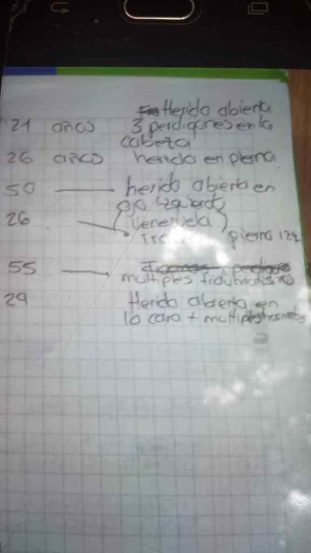 Herida abierta
21 años 3 perdigones en la
cabeza
26 años herida en pierna
50 herida abierta en
ojo izquierdo
26 (Venezuela)
pierna izq
55
multiples traumatismo
29 Herida abierta en
la cara + multiples